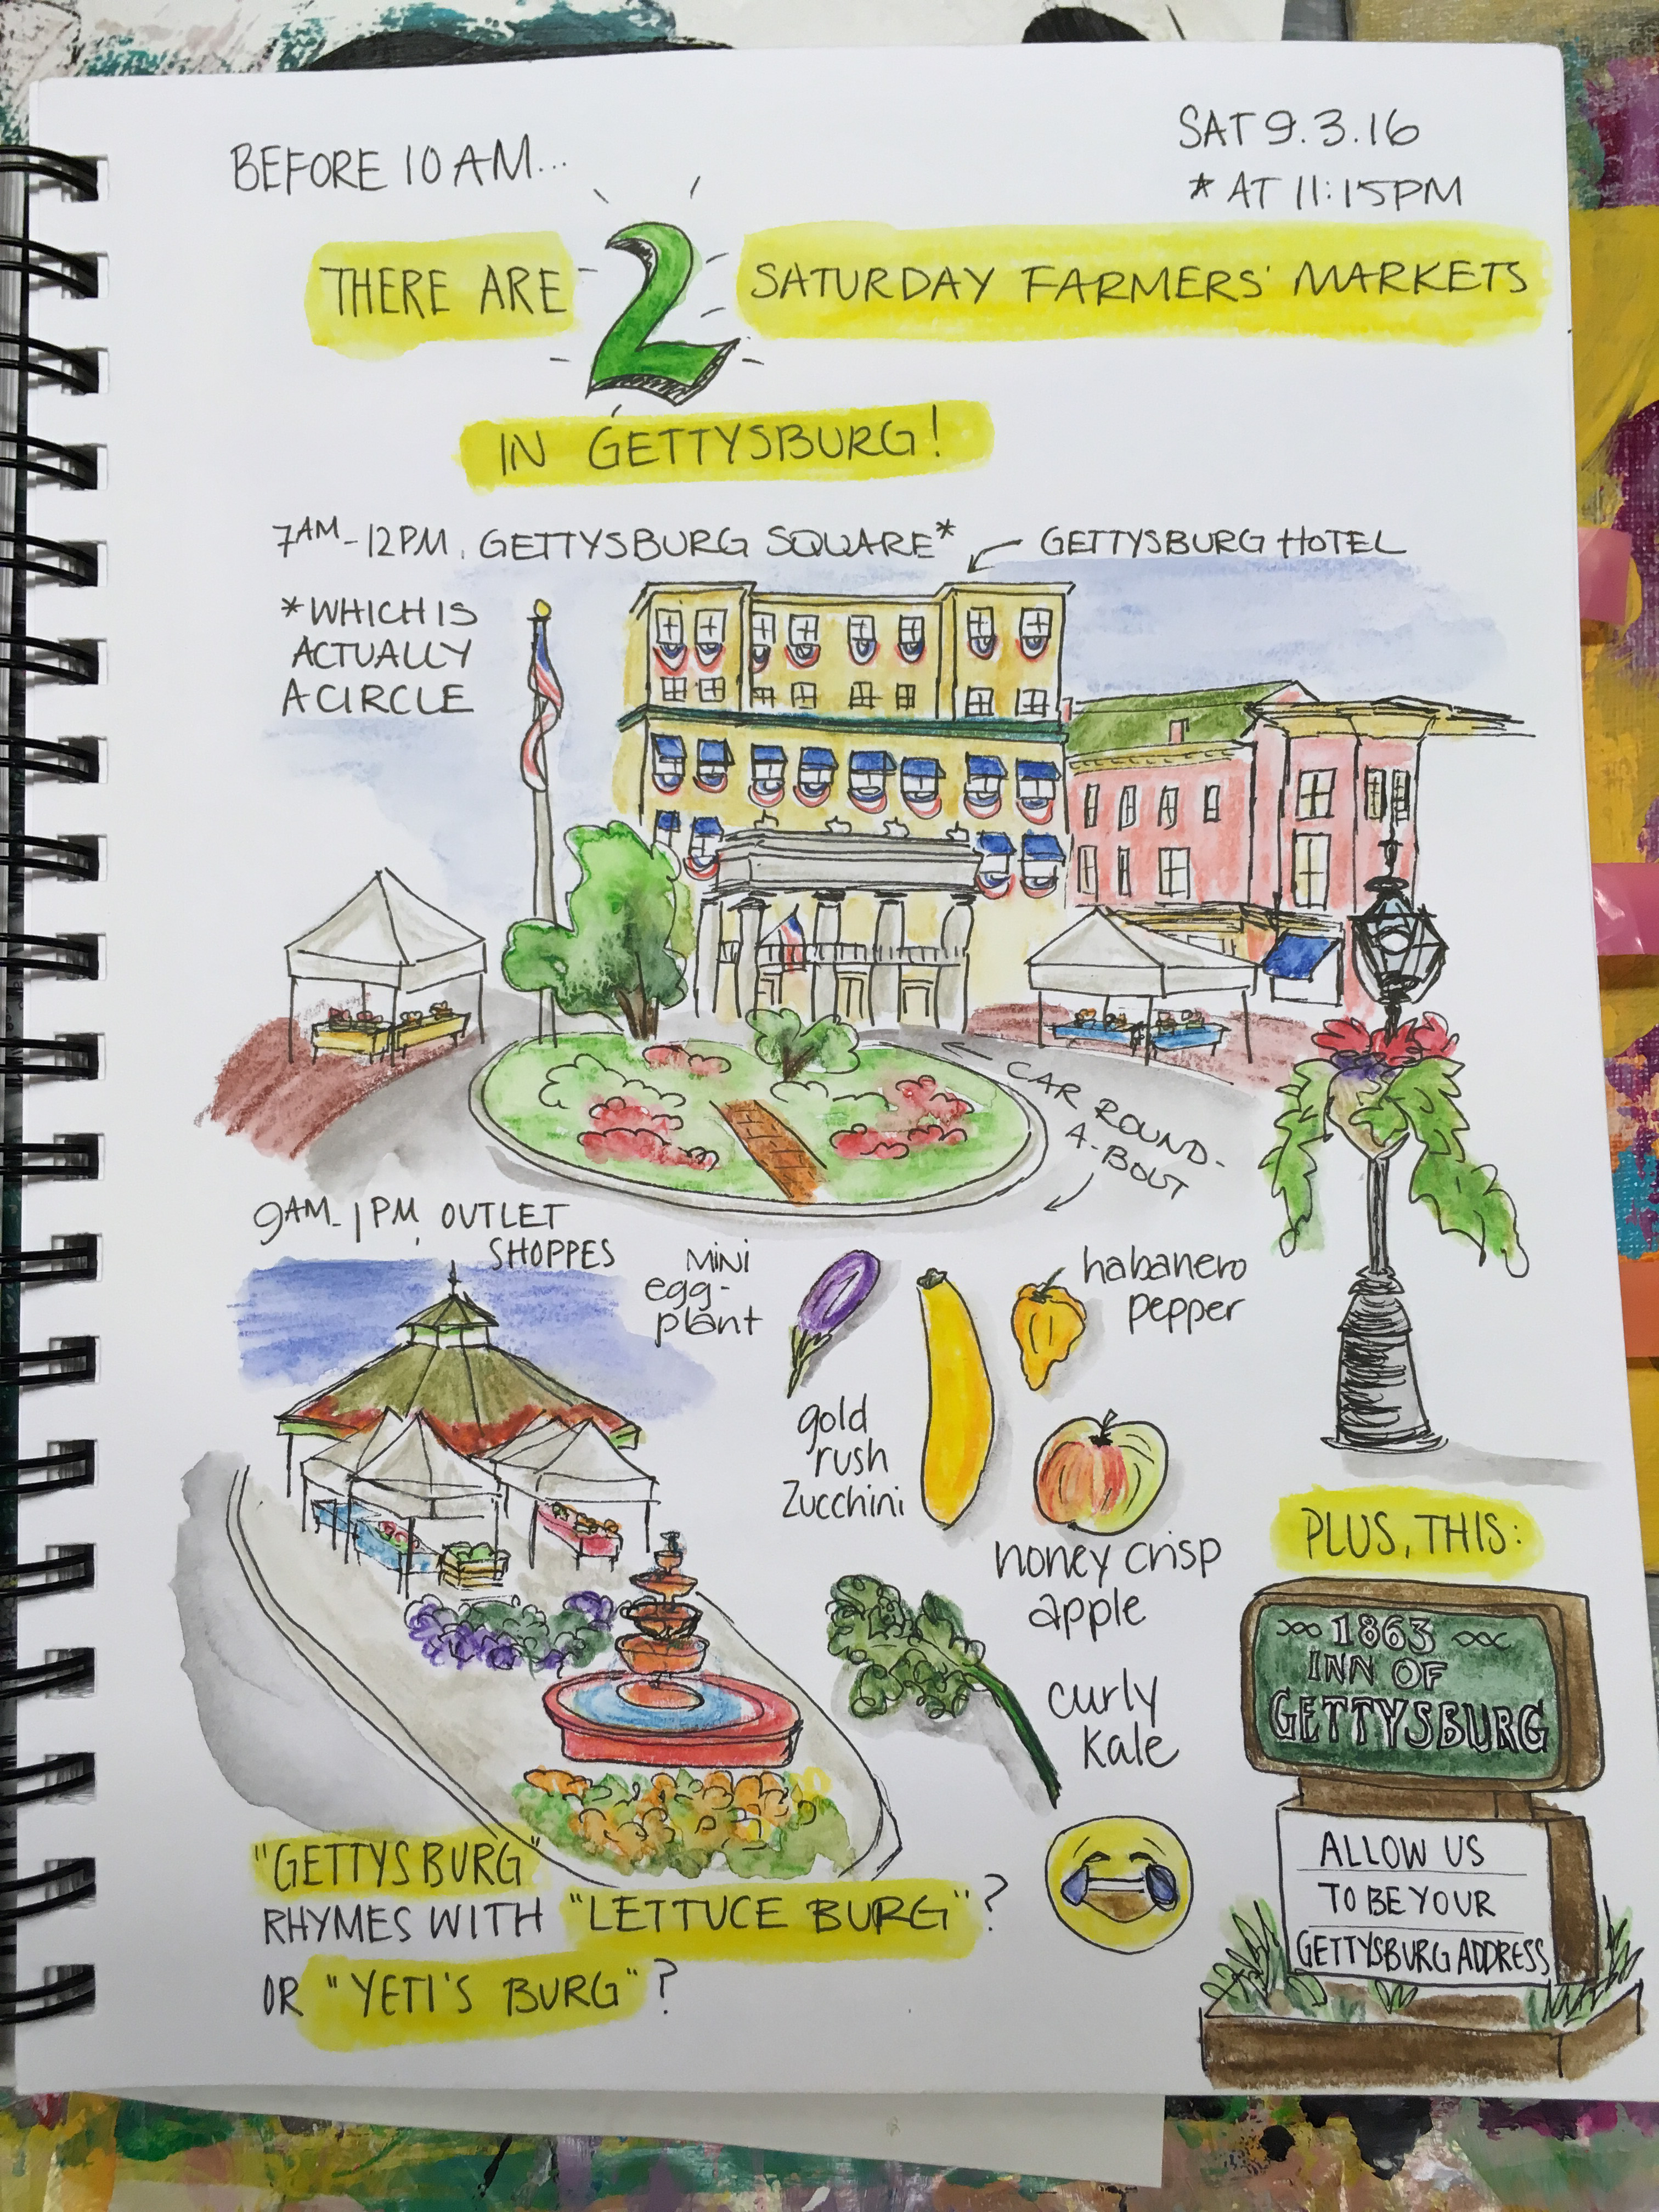 BEFORE 10 AM...
SAT 9.3.16
* AT 11:15PM
THERE ARE 2 SATURDAY FARMERS' MARKETS
IN GETTYSBURG!
7AM-12PM, GETTYSBURG SQUARE*
GETTYSBURG HOTEL
*WHICH IS
ACTUALLY
A CIRCLE
CAR ROUND-
A-BOUT
9AM-1PM, OUTLET
SHOPPES
MINI
egg-
plant
habanero
pepper
gold
rush
Zucchini
honey crisp
apple
curly
kale
PLUS, THIS:
1863
INN OF
GETTYSBURG
ALLOW US
TO BE YOUR
GETTYSBURG ADDRESS
"GETTYSBURG"
RHYMES WITH "LETTUCE BURG"?
OR "YETI'S BURG"?